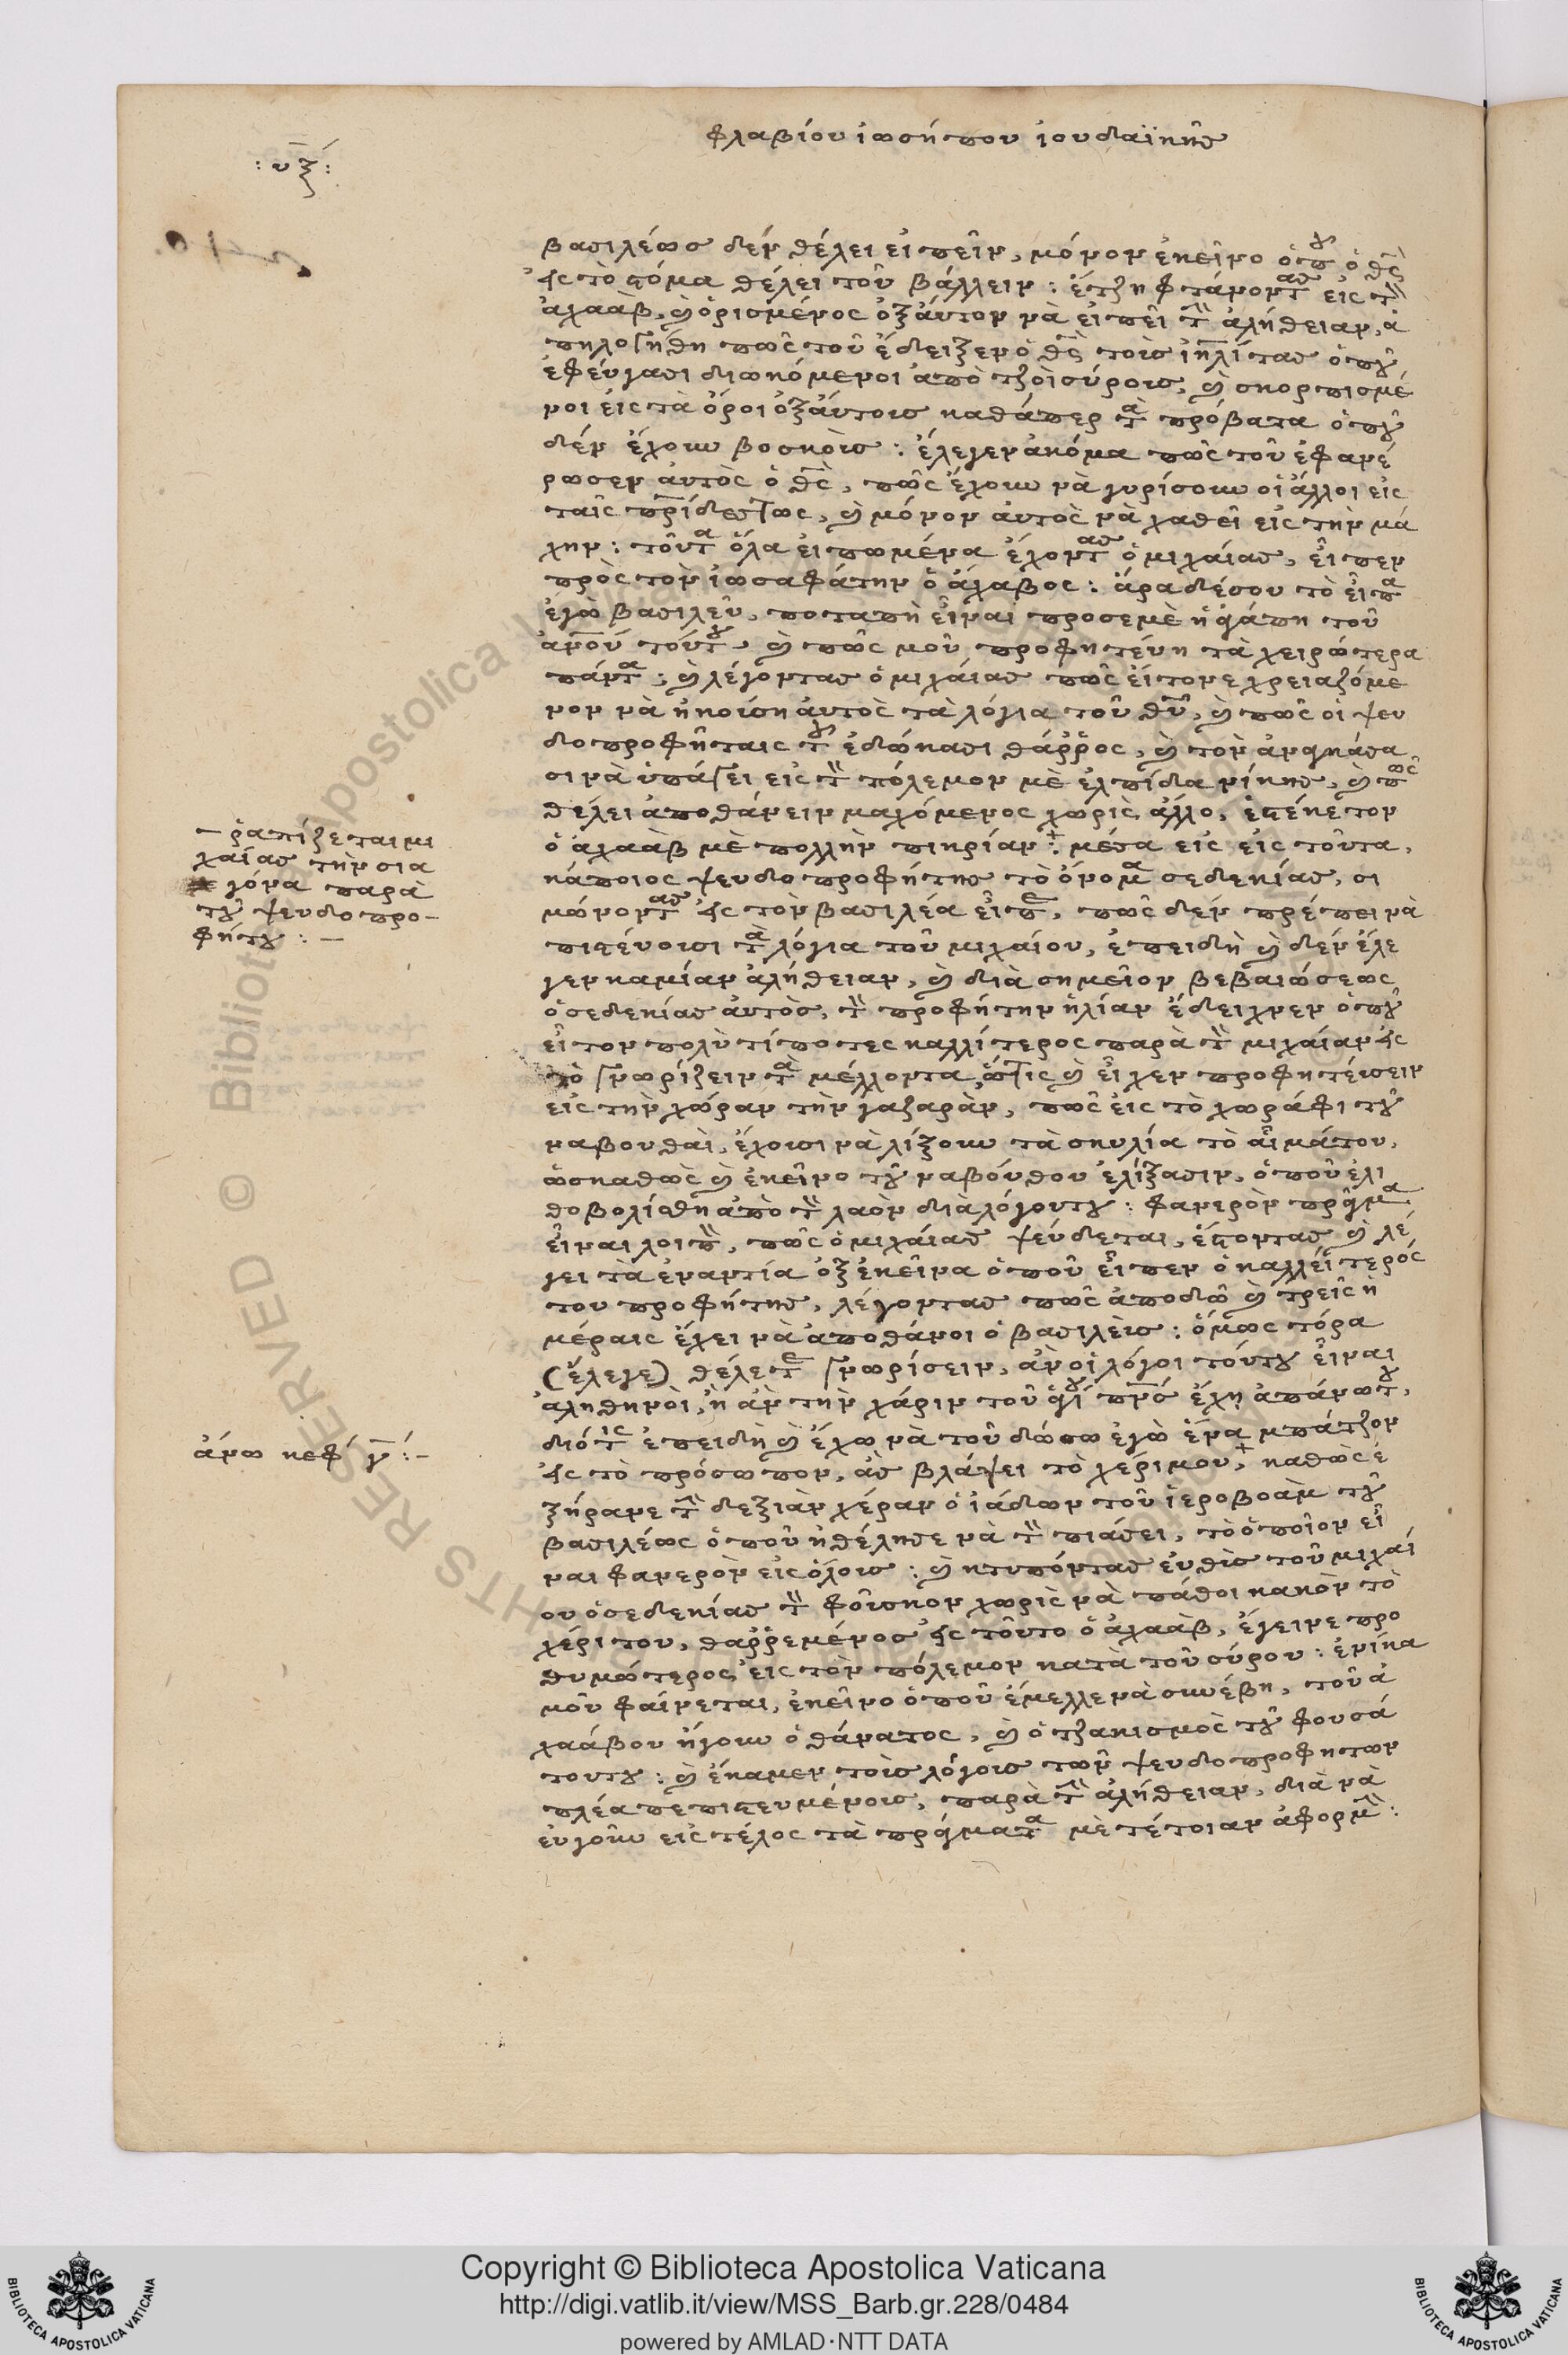 φλαβίου ἰωσήπου ἰουδαϊκῆς
: υξ :
βασιλέως δὲν θέλει εἰπεῖν, μόνον ἐκεῖνο ὁποῦ ὁ θς̄
εἰς τὸ στόμα θέλει τοῦ βάλλειν : ἔτζη φτάνοντας εἰς τὸν
ἀχαάβ, καὶ ὁρισμένος ὀξαὐτον νὰ εἰπεῖ τὴν ἀλήθειαν, ἀ
πηλογήθη πῶς τοῦ ἔδειξεν ὁ θς̄ τοὺς ἰηλίτας ὁποῦ
ἐφεύγασι διωκόμενοι ἀπὸ τζοὶ σύρους, καὶ σκορπισμέ
νοι εἰς τὰ ὄροι ὀξαὐτους καθάπερ τὰ πρόβατα ὁποῦ
δὲν ἔχουν βοσκοὺς : ἔλεγεν ἀκόμα πῶς τοῦ ἐφανέ
ρωσεν αὐτὸς ὁ θς̄, πῶς ἔχουν νὰ γυρίσουν οἱ ἄλλοι εἰς
ταῖς πρίδες τως, καὶ μόνον αὐτὸς νὰ χαθεῖ εἰς τὴν μά
χην : τοῦτα ὅλα εἰπωμένα ἔχοντας ὁ μιχαίας, εἶπεν
πρὸς τὸν ἰωσαφάτην ὁ ἄχαβος : ἄρα δέσου τὸ εἶπα
ἐγὼ βασιλεῦ, ποταπὴ εἶναι προσεμὲ ἡ ἀγάπη τοῦ
ἀνοῦ τούτου, καὶ πῶς μοῦ προφητεύη τὰ χειρώτερα
πάντα ; καὶ λέγοντας ὁ μιχαίας πῶς εἴτονε χρειαζόμε
νον νὰ ἠκούση αὐτὸς τὰ λόγια τοῦ θῦ, καὶ πῶς οἱ ψευ
δοπροφῆταις τοῦ ἐδώκασι θάῤῥος, καὶ τὸν ἀναγκάσα
σι νὰ ὑπάγει εἰς τὸν πόλεμον μὲ ἐλπίδα νίκης, καὶ πῶς
θέλει ἀποθάνειν μαχόμενος χωρὶς ἄλλο, ἐστένετον
ὁ ἀχαὰβ μὲ πολλὴν πικρίαν : μέσα εἰς εἰς τοῦτα,
κάποιος ψευδοπροφήτης τὸ ὄνομα σεδεκίας, σι
μώνοντας εἰς τὸν βασιλέα εἶπε, πῶς δὲν πρέπει νὰ
πιστεύουσι τὰ λόγια τοῦ μιχαίου, ἐπειδὴ καὶ δὲν ἔλε
γεν καμίαν ἀλήθειαν, καὶ διὰ σημεῖον βεβαιώσεως
ὁ σεδεκίας αὐτὸς, τὸν προφήτην ἠλίαν ἔδειχνεν ὁποῦ
εἶτον πολὺ τίποτες καλλίτερος παρὰ τὸν μιχαίαν εἰς
τὸ γνωρίζειν τὰ μέλλοντα, ὅστις καὶ εἶχεν προφητεύσειν
εἰς τὴν χώραν τὴν γαζαρὰν, πῶς εἰς τὸ χωράφι τοῦ
ναβουθαὶ, ἔχουσι νὰ λίξουν τὰ σκυλία τὸ αἷμάτου,
ὡσκαθὼς καὶ ἐκεῖνο τοῦ ναβούθου ἐλίξασιν, ὁποῦ ἐλι
θοβολίσθη ἀπὸ τὸν λαὸν διὰ λόγουντου : φανερὸν πρᾶγμα
εἶναι λοιπὸν, πῶς ὁ μιχαίας ψεύδεται, ἔστοντας καὶ λέ
γει τὰ ἐναντία ὀξ ἐκεῖνα ὁποῦ εἶπεν ὁ καλλεῖτερός
του προφήτης, λέγοντας πῶς ἀποδῶ καὶ τρεῖς ἡ
μέραις ἔχει νὰ ἀποθάνοι ὁ βασιλεὺς : ὅμως τόρα
(ἔλεγε) θέλετε γνωρίσειν, ἀν οἱ λόγοι τούτου εἶναι
ἀληθηνοὶ, ἢ ἀν τὴν χάριν τοῦ ἁγίου πνσ ἔχη ἀπάνωτου,
διότις ἐπειδὴ καὶ ἔχω νὰ τοῦ δώσω ἐγὼ ἕνα μπάτζον
εἰς τὸ πρόσωπον, ἀς βλάψει τὸ χέριμου, καθὼς ἐ
ξήρανε τὴν δεξιὰν χέραν ὁ ἰάδων τοῦ ἱεροβοὰμ τοῦ
βασιλέως ὁποῦ ἠθέλησε νὰ τὸν πιάσει, τὸ ὁποῖον εἶ
ναι φανερὸν εἰς ὅλους : καὶ κτυπόντας εὐθὺς τοῦ μιχαί
ου ὁ σεδεκίας τὸν φοῦσκον χωρὶς νὰ πάθοι κακὸν τὸ
χέρι του, θαῤῥεμένος εἰς τοῦτο ὁ ἀχαὰβ, ἔγεινε προ
θυμώτερος εἰς τὸν πόλεμον κατὰ τοῦ σύρου : ἐνίκα
μοῦ φαίνεται, ἐκεῖνο ὁποῦ ἔμελλε νὰ συνέβη, τοῦ ἀ
χαάβου ἤγουν ὁ θάνατος, καὶ ὁ τζακισμὸς τοῦ φουσά
τουτου : καὶ ἔκαμεν τοὺς λόγους τῶν ψευδοπροφητων
πλέα πεπιστευμένους, παρὰ τὴν ἀλήθειαν, διὰ νὰ
εὐγοῦν εἰς τέλος τὰ πράγματα μὲ τέτοιαν ἀφορμὴν :
– ῥαπίζεται μι
χαίας τὴν σια
γόνα παρὰ
τοῦ ψευδοπρο-
φήτου : –
ἀνω κεφ γ̄ : –
Copyright © Biblioteca Apostolica Vaticana
http://digi.vatlib.it/view/MSS_Barb.gr.228/0484
powered by AMLAD·NTT DATA
BIBLIOTECA APOSTOLICA VATICANA
BIBLIOTECA APOSTOLICA VATICANA